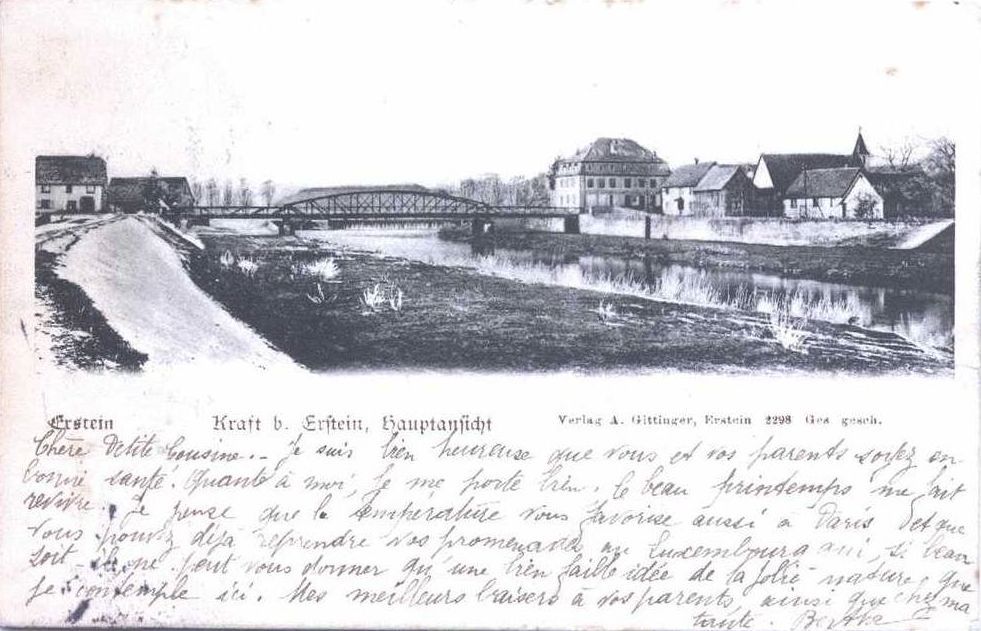 Erstein
Kraft b. Erstein, Hauptansicht
Verlag A. Gittinger, Erstein 2298 Ges gesch.
Chère Petite Cousine.. Je suis bien heureuse que vous et vos parents soyez en
bonne santé. Quante à moi, je me porte bien. Ce beau printemps me fait
revivre. Je pense que la température vous favorise aussi à Paris et que
vous pouvez déjà reprendre vos promenades au Luxembourg qui, si beau
soit-il, ne peut vous donner qu'une bien faible idée de la jolie nature que
je contemple ici. Mes meilleurs baisers à vos parents, ainsi que chez ma
tante. Berthe